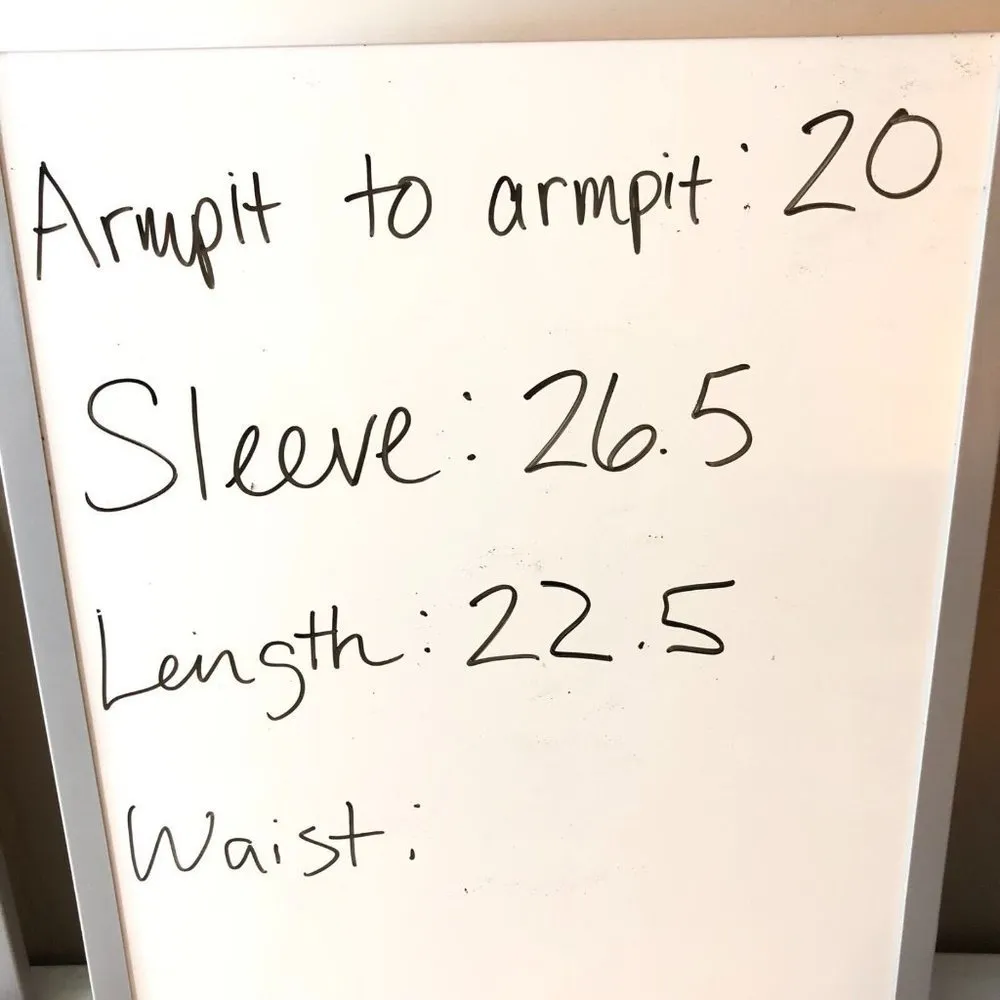 Armpit to armpit: 20
Sleeve: 26.5
Length: 22.5
Waist: